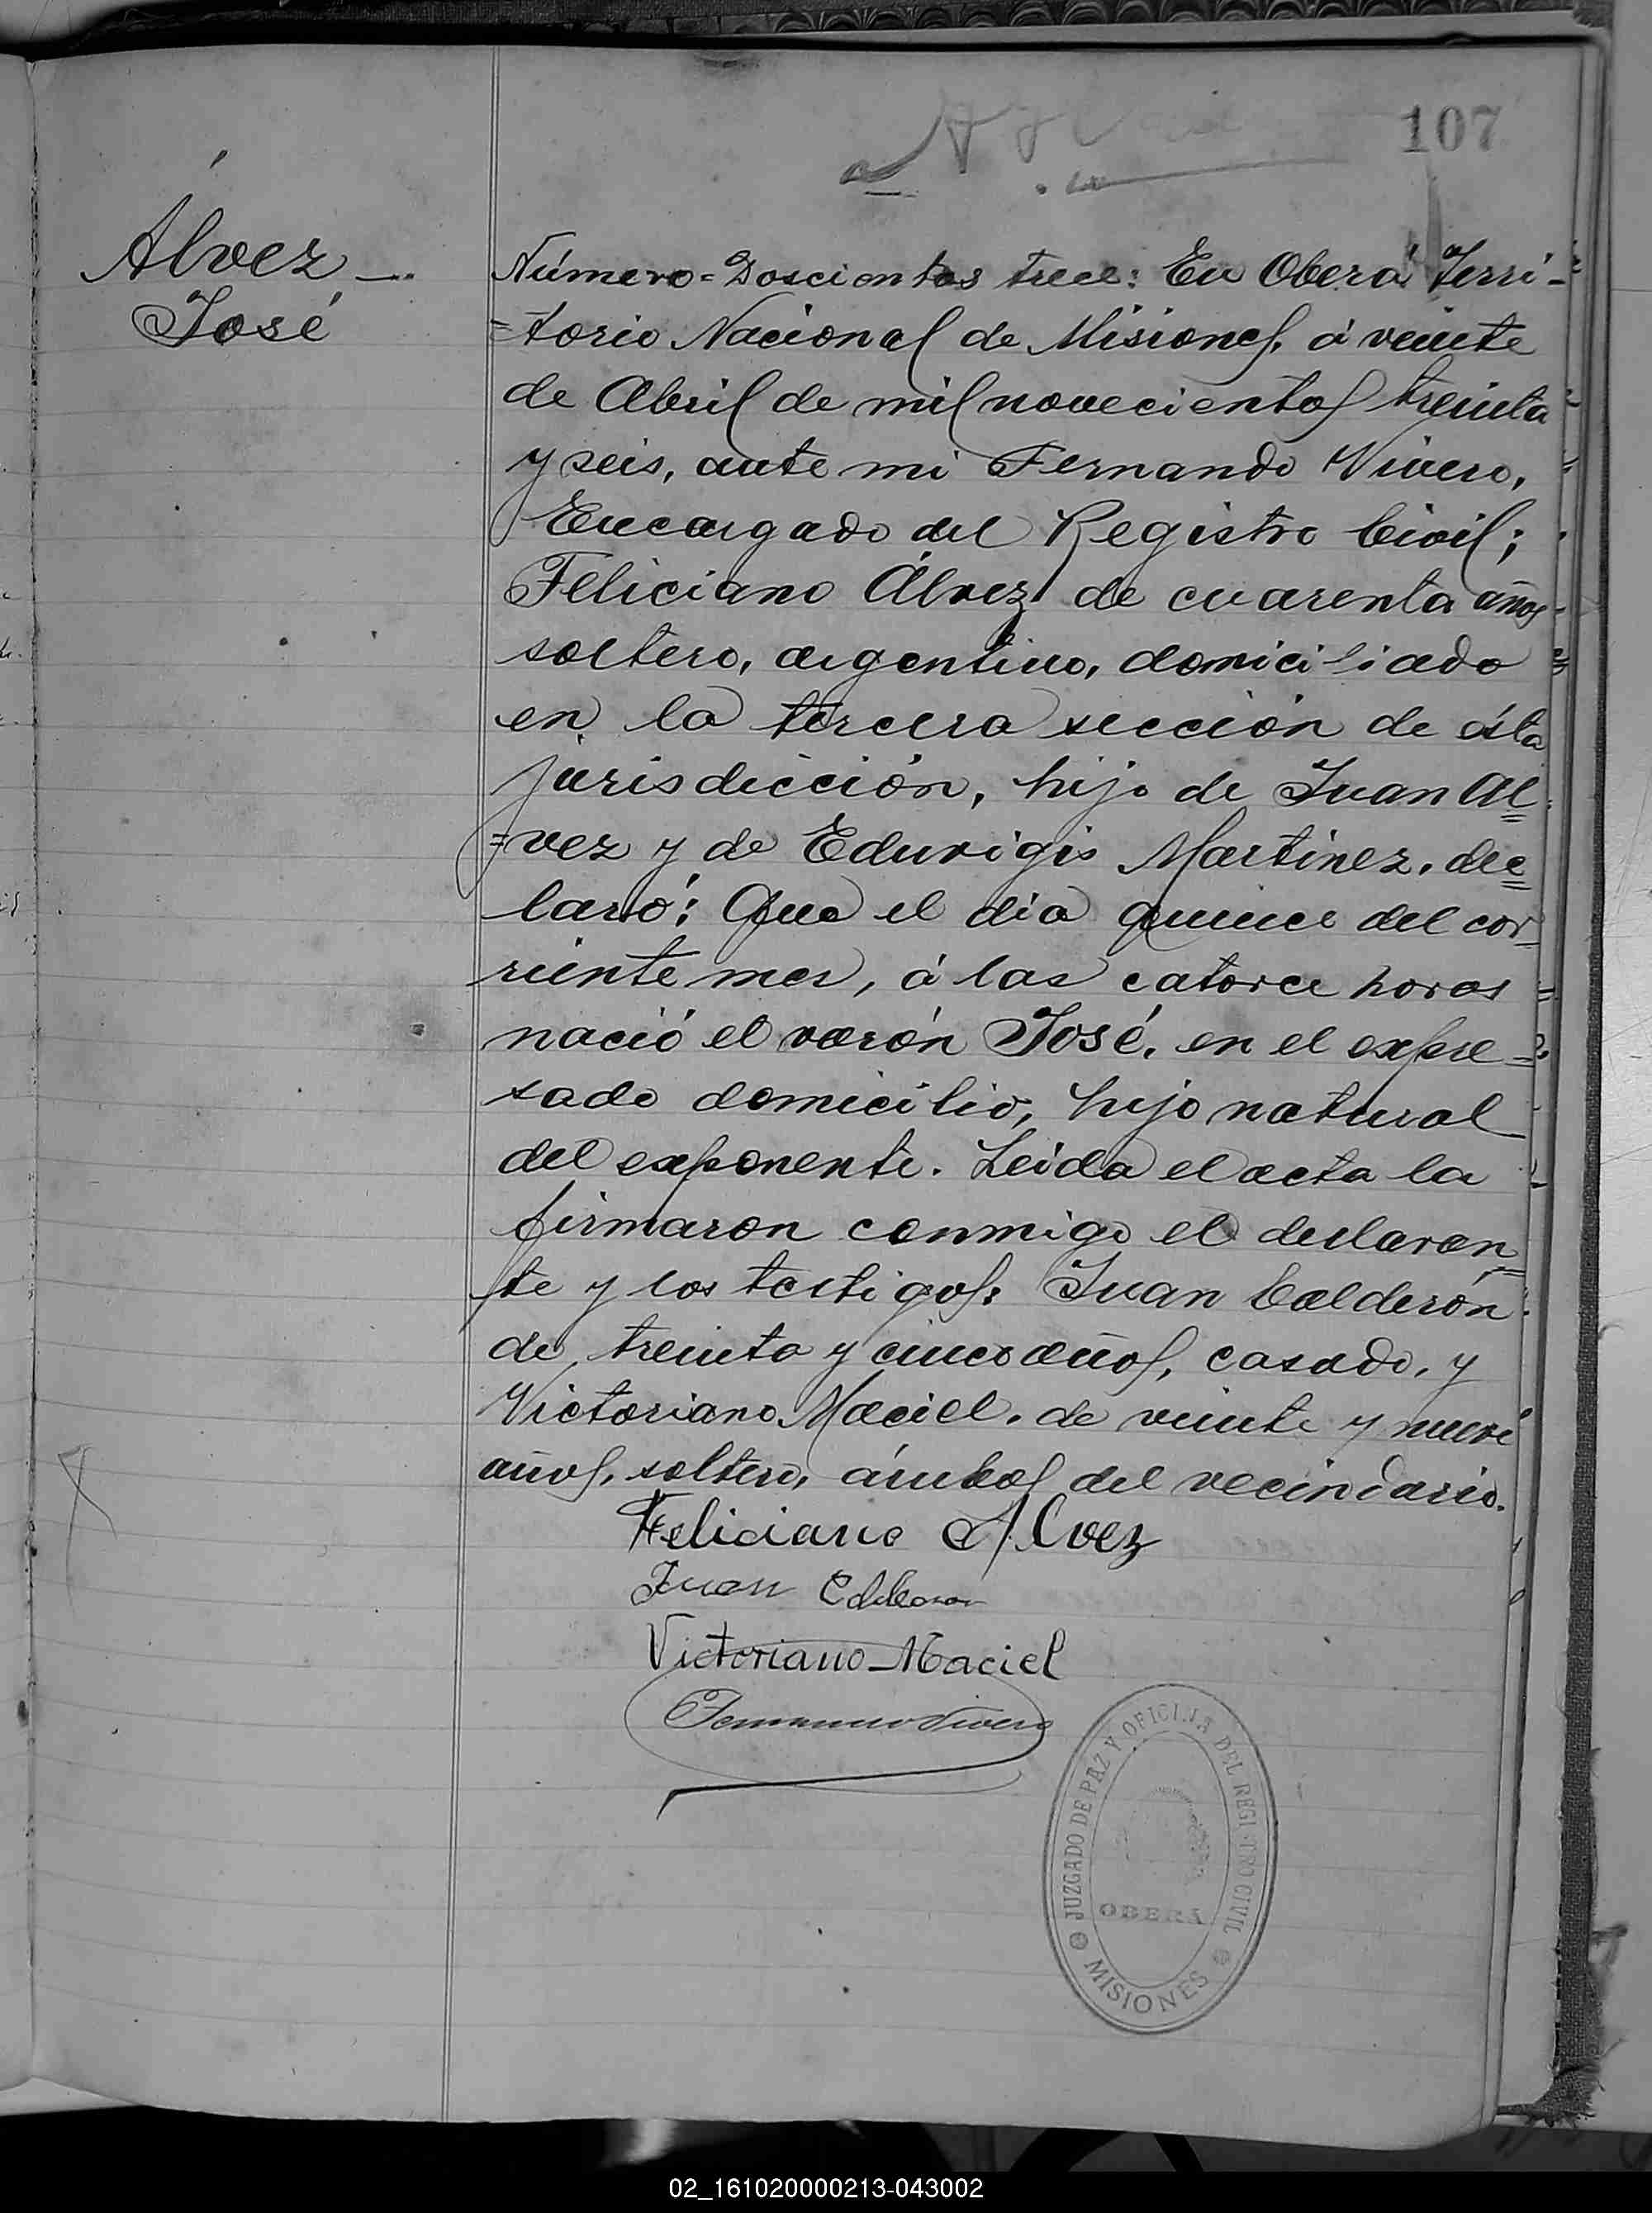 107
Álvez
José
Número = Doscientos trece: En Oberá Terri-
=torio Nacional de Misiones, á veinte
de Abril de mil novecientos treinta
y seis, ante mi Fernando Vivero,
Encargado del Registro Civil;
Feliciano Álvez de cuarenta años
soltero, argentino, domiciliado
en la tercera sección de ésta
jurisdicción, hijo de Juan Al=
=vez y de Eduvigis Martinez, dec=
laró: Que el día quince del cor-
riente mes, á las catorce horas
nació el varón José, en el expre-
sado domicilio, hijo natural
del exponente. Leida el acta la
firmaron conmigo el declaran=
te y los testigos: Juan Calderón
de treinta y cinco años, casado, y
Victoriano Maciel, de veinte y nueve
años, soltero, ámbos del vecindario.
Feliciano Alvez
Juan
Victoriano Maciel
Fernando Vivero
JUZGADO DE PAZ Y OFICINA DEL REGISTRO CIVIL
OBERÁ
MISIONES
02_161020000213-043002